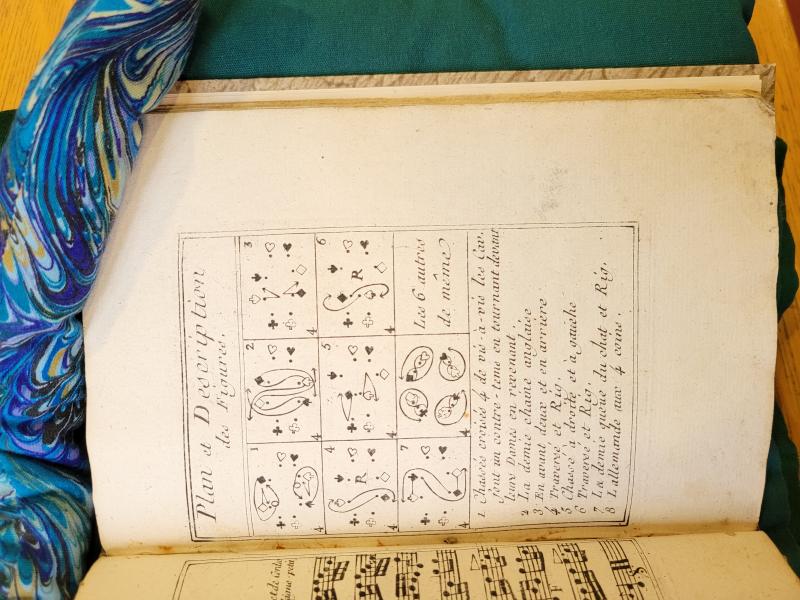 Plan et Description
des Figures.
1 2 3
4 4 4
4 5 6
R R
4 4 4
7
Les 6 autres
de même
4
1 Chassés croisés 4 de vis-à-vis les Cav.
font un contre-tems en tournant devant
leurs Dames en revenant.
2 La demie chaine anglaise
3 En avant deux et en arriere
4 Traversé et Rig.
5 Chassé à droite et à gauche
6 Traversé et Rig.
7 La demie queue du chat et Rig.
8 L'allemande aux 4 coins.